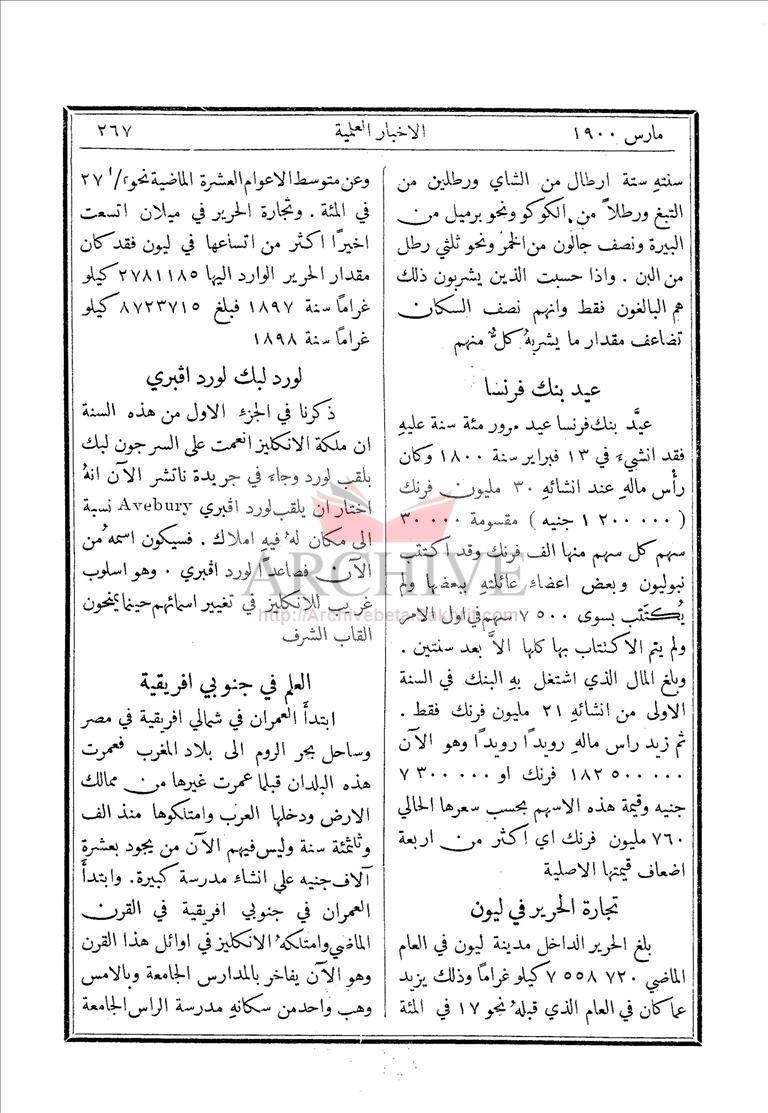 مارس ١٩٠٠
الاخبار العلمية
٢٦٧
سنتهِ ستة ارطال من الشاي ورطلين من
التبغ ورطلاً من الكوكو ونحو برميل من
البيرة ونصف جالون من الخمر ونحو ثلثي رطل
من البن . واذا حسبت الذين يشربون ذلك
هم البالغون فقط وانهم نصف السكان
تضاعف مقدار ما يشربهُ كلٌّ منهم
عيد بنك فرنسا
عيَّد بنك فرنسا عيد مرور مئة سنة عليهِ
فقد انشيءَ في ١٣ فبراير سنة ١٨٠٠ وكان
رأس مالهِ عند انشائهِ ٣٠ مليون فرنك
( ١ ٢٠٠ ٠٠٠ جنيه ) مقسومة ٣٠ ٠٠٠
سهم كل سهم منها الف فرنك وقد اكتتب
نبوليون وبعض اعضاء عائلتهِ ببعضها ولم
يُكتَتب بسوى ٧ ٥٠٠ سهم في اول الامر
ولم يتم الاكتتاب بها كلها الاَّ بعد سنتين .
وبلغ المال الذي اشتغل بهِ البنك في السنة
الاولى من انشائهِ ٢١ مليون فرنك فقط .
ثم زيد راس مالهِ رويدًا رويدًا وهو الآن
١٨٢ ٥٠٠ ٠٠٠ فرنك او ٧ ٣٠٠ ٠٠٠
جنيه وقيمة هذه الاسهم بحسب سعرها الحالي
٧٦٠ مليون فرنك اي اكثر من اربعة
اضعاف قيمتها الاصلية
تجارة الحرير في ليون
بلغ الحرير الداخل مدينة ليون في العام
الماضي ٧ ٥٥٨ ٧٢٠ كيلو غرامًا وذلك يزيد
عما كان في العام الذي قبلهُ نحو ١٧ في المئة
وعن متوسط الاعوام العشرة الماضية نحو ٢٧ ١/٢
في المئة . وتجارة الحرير في ميلان اتسعت
اخيرًا اكثر من اتساعها في ليون فقد كان
مقدار الحرير الوارد اليها ٢٧٨١١٨٥ كيلو
غرامًا سنة ١٨٩٧ فبلغ ٨٧٢٣٧١٥ كيلو
غرامًا سنة ١٨٩٨
لورد لبك لورد اڤبري
ذكرنا في الجزء الاول من هذه السنة
ان ملكة الانكليز انعمت على السر جون لبك
بلقب لورد وجاء في جريدة ناتشر الآن انهُ
اختار ان يلقب لورد اڤبري Avebury نسبة
الى مكان لهُ فيهِ املاك . فسيكون اسمهُ من
الآن فصاعدًا لورد اڤبري . وهو اسلوب
غريب للانكليز في تغيير اسمائهم حينما يمنحون
القاب الشرف
العلم في جنوبي افريقية
ابتدأ العمران في شمالي افريقية في مصر
وساحل بحر الروم الى بلاد المغرب فعمرت
هذه البلدان قبلما عمرت غيرها من ممالك
الارض ودخلها العرب وامتلكوها منذ الف
وثلثمئة سنة وليس فيهم الآن من يجود بعشرة
آلاف جنيه على انشاء مدرسة كبيرة. وابتدأ
العمران في جنوبي افريقية في القرن
الماضي وامتلكهُ الانكليز في اوائل هذا القرن
وهو الآن يفاخر بالمدارس الجامعة وبالامس
وهب واحد من سكانهِ مدرسة الراس الجامعة
ARCHIVE